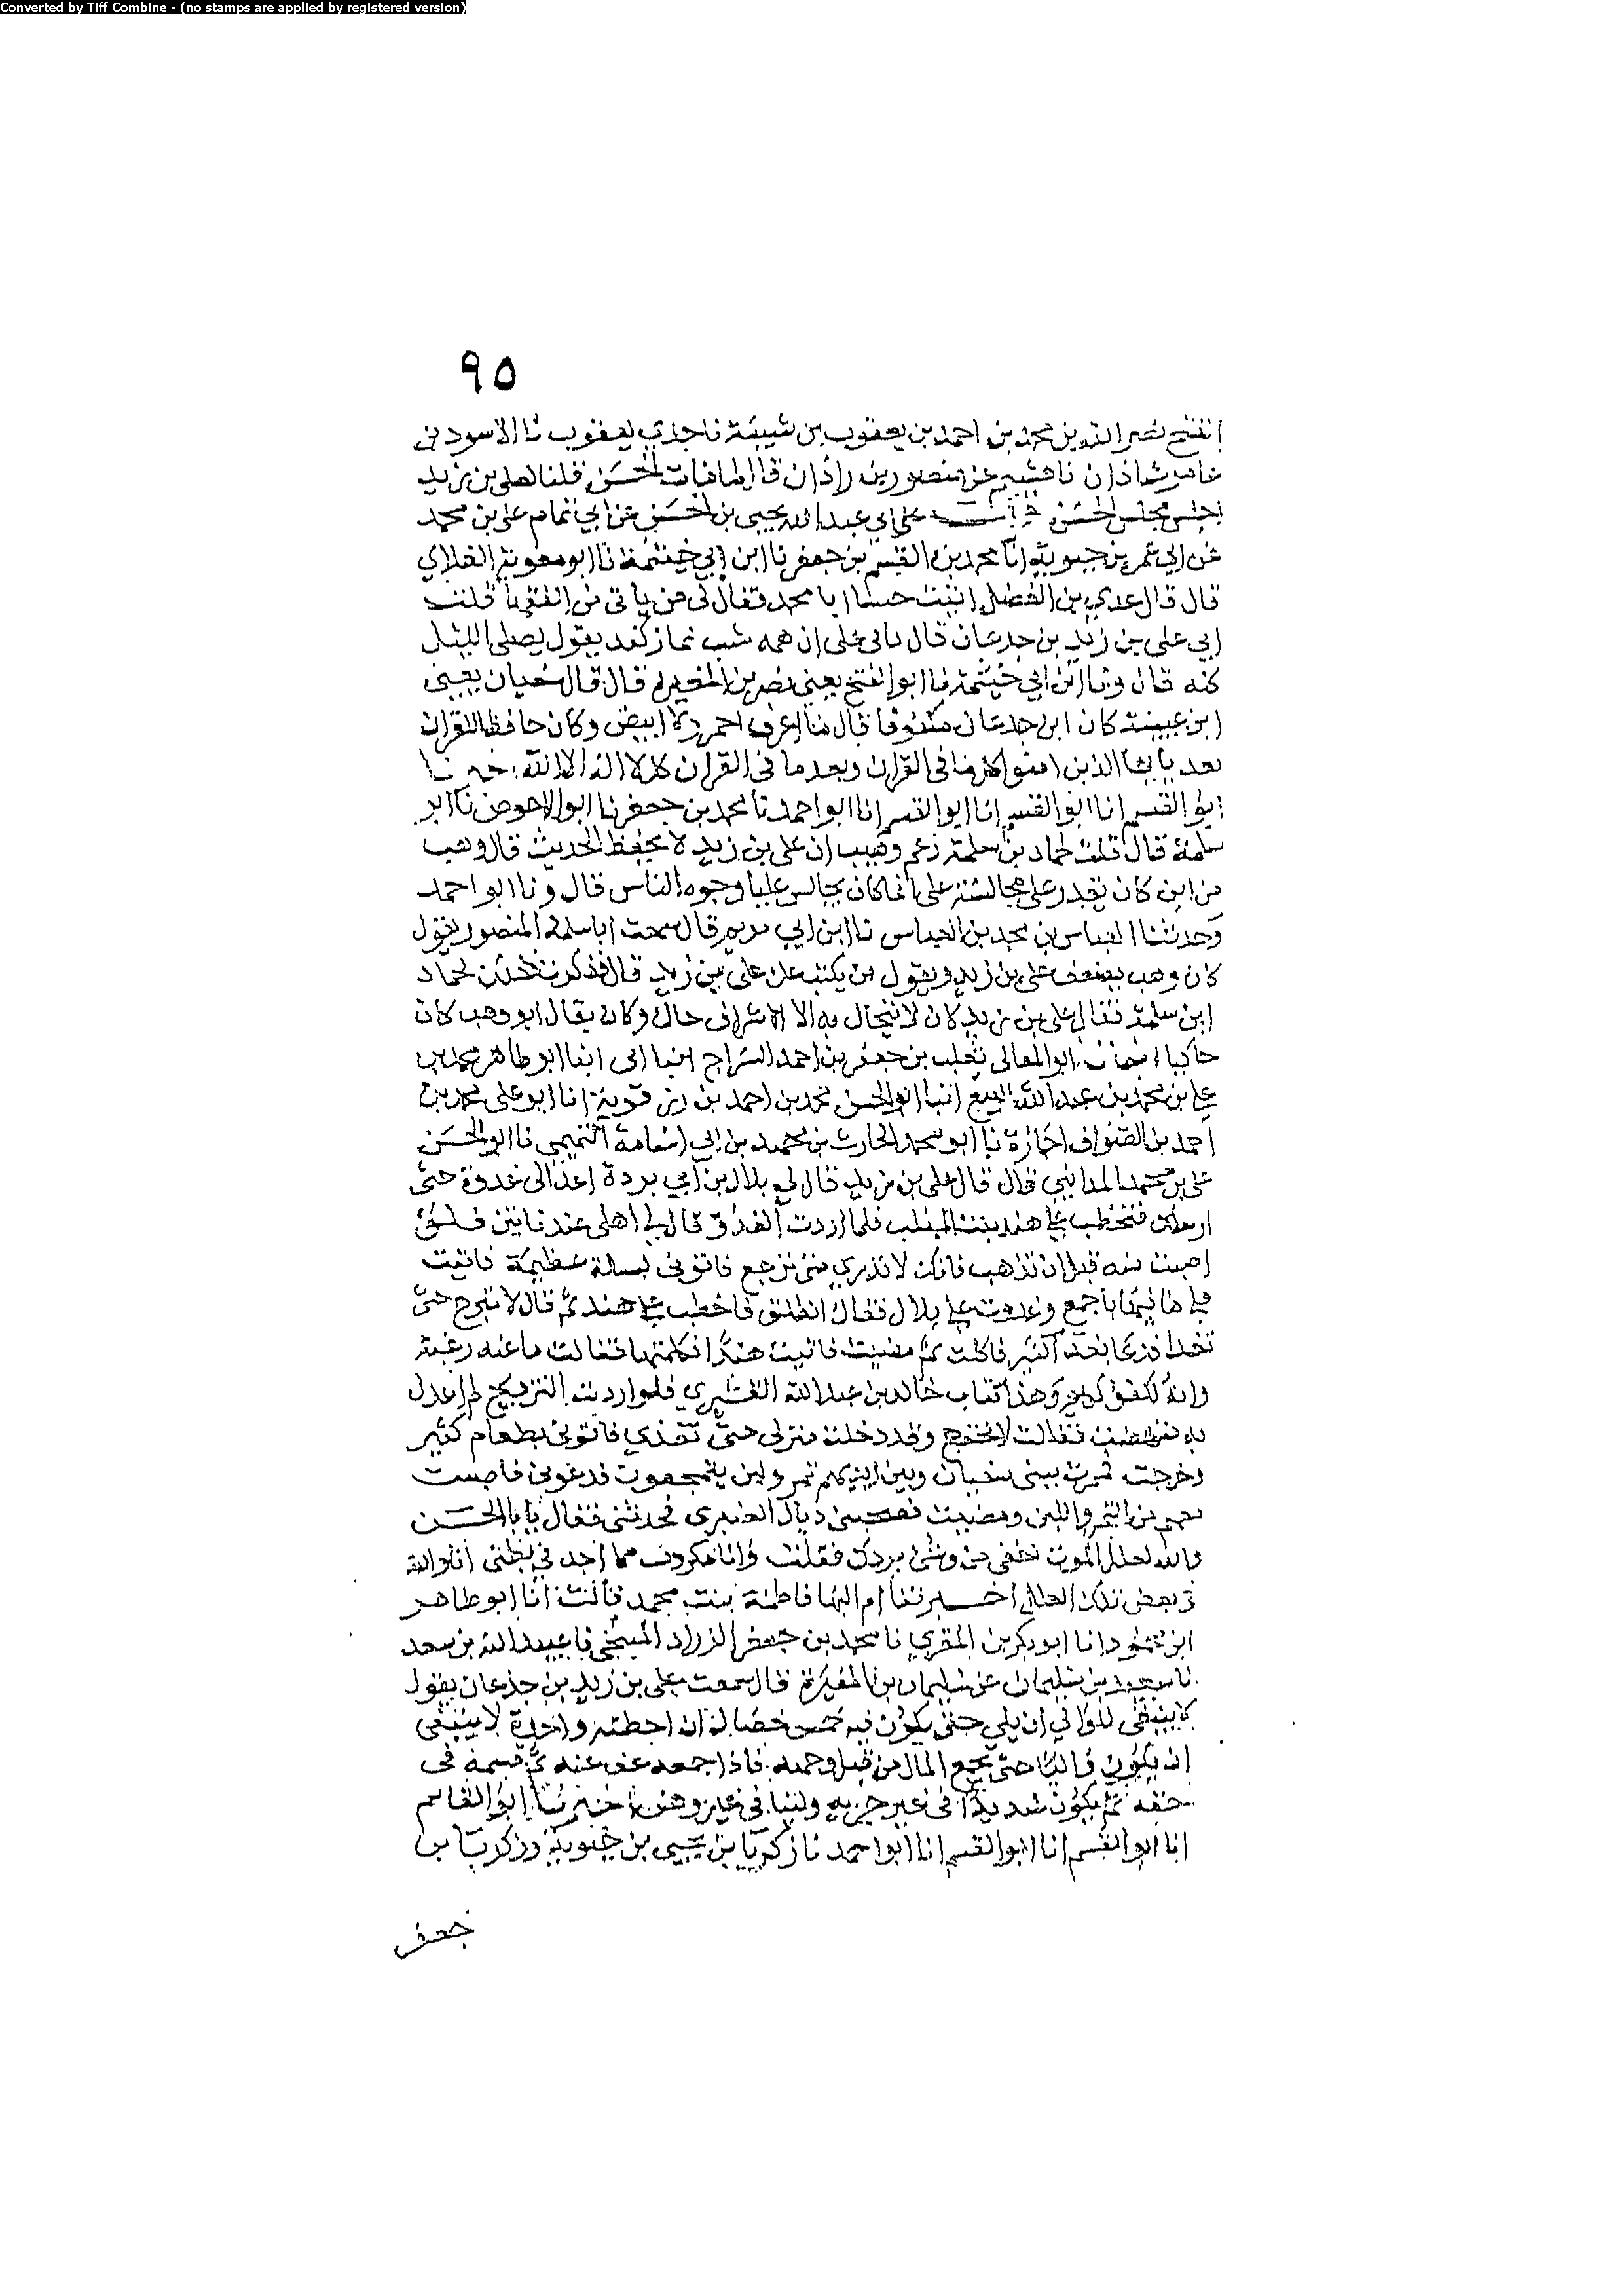 Converted by Tiff Combine - (no stamps are applied by registered version)
٩٥
الفتح نصر الله بن محمد بن احمد بن يعقوب بن شيبة نا جدي يعقوب نا الاسود بن
عامر شاذان نا هشيم عن منصور بن زاذان قال لما مات الحسن قلنا لعلي بن زيد
اجلس مجلس الحسن قرأت على ابي عبد الله يحيى بن الحسن عن ابي تمام علي بن محمد
عن ابي عمر بن حيوية انا محمد بن القسم بن جعفر نا ابن ابي خيثمة نا ابو معوية الغلابي
قال قال عدي بن الفضل اتيت حسانا يا محمد فقال لي من ياتي من قلت
ابي علي بن زيد بن جدعان قال ياتي علي ان همه شب نماز كند يقول يصلي الليل
كله قال ونا ابن ابي خيثمة نا ابو الفتح يعني نصر بن المغيرة قال قال سفيان يعني
ابن عيينة كان ابن جدعان مكفوفا قال ما اعرف احمر ولا ابيض وكان حافظا للقرآن
يعد يا ايها الذين امنوا كلها في القران ويعد ما في القران كله لا اله الا الله اخبرنا
ابو القسم انا ابو القسم انا ابو القسم انا ابو احمد نا محمد بن جعفر نا ابو الاحوص نا ابو
سلمة قال قلت لحماد بن سلمة زعم وهيب ان علي بن زيد لا يحفظ الحديث قال وهيب
من اين كان يقدر على مجالسة علي انما كان يجالس عليا وجوه الناس قال ونا ابو احمد
وحدثنا العباس بن محمد بن العباس نا ابن ابي مريم قال سمعت ابا سلمة المنصور يقول
كان وهب يضعف علي بن زيد ويقول من يكتب عن علي بن زيد قال فذكرت ذلك لحماد
ابن سلمة فقال علي بن زيد كان لا ينحال به الا الاشراف حال وكان يقال ابو وهب كان
حائكا انبانا ابو المعالي ثعلب بن جعفر بن احمد السراج انبا ابي انبا ابو طاهر محمد بن
علي بن محمد بن عبد الله البيع انبا ابو الحسن محمد بن احمد بن رزقوية انا ابو علي محمد بن
احمد بن الصواف اجازة نا ابو محمد الحارث بن محمد بن ابي اسامة التميمي نا ابو الحسن
علي بن محمد المدايني قال قال علي بن زيد قال لي بلال بن ابي بردة اغد الي غدوة حتى
ارسلك فتخطب علي هند بنت المهلب فلما اردت الغدو قال لي اهلي عندنا شيء
اصبت منه قبل ان تذهب فانك لا تدري متى ترجع فاتوني عظيمة فاتيت
عليها باجمع وغدوت علي بلال فقال انطلق فاخطب علي هند ثم قال لا تبرح حتى
تغدا فدعا فاكلت ثم مضيت فاتيت هندا فكلمتها فقالت ما عنه رغبة
وانه لكفو كريم وهذا كتاب خالد بن عبد الله القشيري فلو اردت التزويج لم اعدل
به فنهضت فقالت لا تخرج وقد دخلت منزلي حتى تغذي فاتوني بطعام كثير
وخرجت فمررت ببني شيبان وبين ايديهم تمر ولبن يتمجعون فدعوني فاصبت
معهم من التمر واللبن ومضيت فصحبني ذيال العنبري فحدثني فقال يا ابا الحسن
والله لعلل الموت اخفى من وشي بردك فقلت وانا مكروب مما اجد في بطني انا والله
في بعض تلك العلل اخبرتنا ام البها فاطمة بنت محمد قالت انا ابو طاهر
ابن محمود انا ابو بكر بن المقري نا محمد بن جعفر الزراد المنبجي نا عبيد الله بن سعد
نا سعيد بن سليمان عن سليمان بن المغيرة قال سمعت علي بن زيد بن جدعان يقول
لا ينبغي للوالي ان يلي حتى يكون فيه خمس خصال ان اخطته واحدة لا ينبغي
ان يكون واليا حتى يجمع المال من قبل وجهه فاذا جمعه عف عنه ثم قسمه في
حقه ثم يكون شديدا في غير جبرية ولينا في غير وهن اخبرنا ابو القاسم
انا ابو القسم انا ابو القسم انا ابو احمد نا زكريا بن يحيى بن حيوية وزكريا بن
جعفر